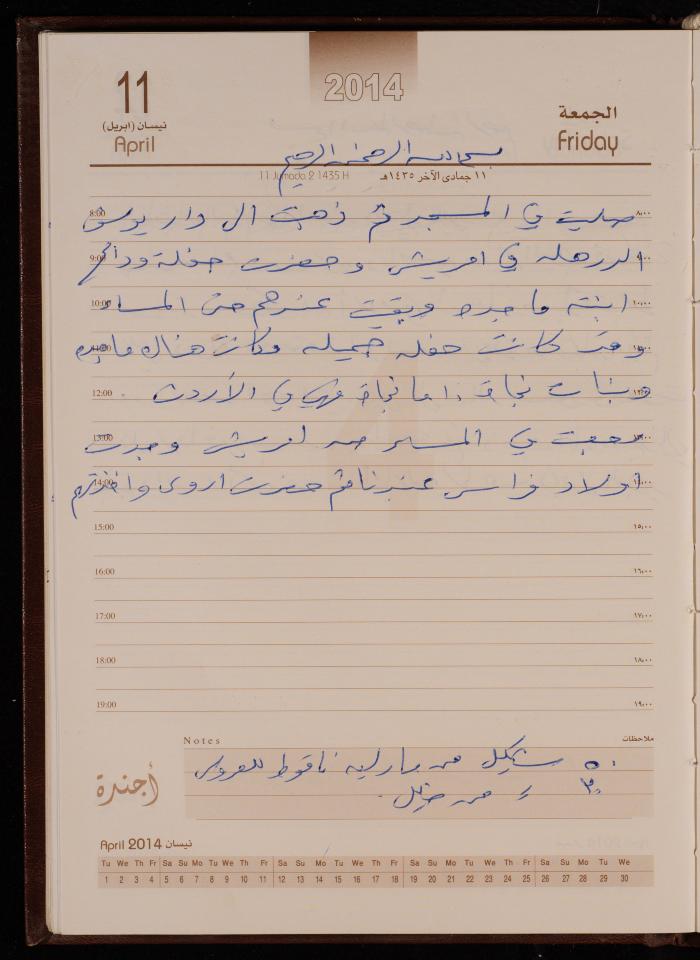 2014
11
نيسان (ابريل)
April
الجمعة
Friday
بسم الله الرحمن الرحيم
11 Jumada 2 1435 H
١١ جمادى الآخر ١٤٣٥هـ
8:00 صليت في المسجد ثم ذهبت الى دار يوسف ٨:٠٠
9:00 في افريش وحضرت حفلة وداع
10:00 ابنته ماجده وبقيت عندهم حتى المساء ١٠:٠٠
وقد كانت حفله جميله وكانت هناك مايده
12:00 وبنات نجاة، اما نجاة فهي في الأردن.
13:00 رجعت في المساء من افريش وجدت
14:00 اولاد فراس عندنا ثم حضرت اروى واخذتهم
15:00 ١٥:٠٠
16:00 ١٦:٠٠
17:00 ١٧:٠٠
18:00 ١٨:٠٠
19:00 ١٩:٠٠
Notes ملاحظات
٥٠ شيكل من ناقوط للعروس
٣٠ = من
أجندة
April 2014 نيسان
Tu We Th Fr Sa Su Mo Tu We Th Fr Sa Su Mo Tu We Th Fr Sa Su Mo Tu We Th Fr Sa Su Mo Tu We
1 2 3 4 5 6 7 8 9 10 11 12 13 14 15 16 17 18 19 20 21 22 23 24 25 26 27 28 29 30